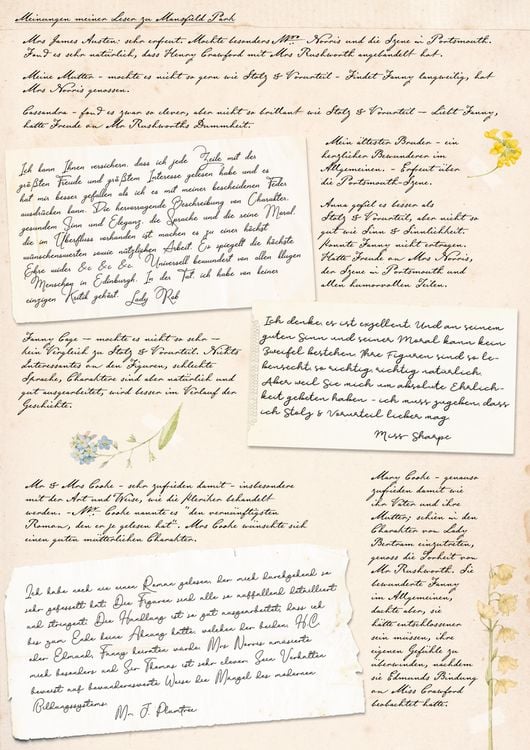 Meinungen meiner Leser zu Mansfield Park
Mrs James Austen: sehr erfreut. Mochte besonders Mrs Norris und die Szene in Portsmouth.
Fand es sehr natürlich, dass Henry Crawford mit Mrs Rushworth angebandelt hat.
Meine Mutter - mochte es nicht so gern wie Stolz & Vorurteil - Findet Fanny langweilig, hat
Mrs Norris genossen.
Cassandra - fand es zwar so clever, aber nicht so brillant wie Stolz & Vorurteil - Liebt Fanny,
hatte Freude an Mr Rushworths Dummheit.
Ich kann Ihnen versichern, dass ich jede Zeile mit der
größten Freude und größtem Interesse gelesen habe und es
hat mir besser gefallen als ich es mit meiner bescheidenen Feder
ausdrücken kann. Die hervorragende Beschreibung von Charakter,
gesundem Sinn und Eleganz, die Sprache und die reine Moral
die im Überfluss vorhanden ist machen es zu einer höchst
wünschenswerten sowie nützlichen Arbeit. Es spiegelt die höchste
Ehre wider &c &c &c. Universell bewundert von allen klugen
Menschen in Edinburgh. In der Tat ich habe von keiner
einzigen Kritik gehört. Lady Rob
Mein ältester Bruder - ein
herzlicher Bewunderer im
Allgemeinen. - Erfreut über
die Portsmouth-Szene.
Anna gefiel es besser als
Stolz & Vorurteil, aber nicht so
gut wie Sinn & Sinnlichkeit.
Konnte Fanny nicht ertragen.
Hatte Freude an Mrs Norris,
der Szene in Portsmouth und
allen humorvollen Teilen.
Fanny Cage - mochte es nicht so sehr -
kein Vergleich zu Stolz & Vorurteil. Nichts
Interessantes an den Figuren, schlechte
Sprache, Charaktere sind aber natürlich und
gut ausgearbeitet, wird besser im Verlauf der
Geschichte.
Ich denke, es ist exzellent. Und an seinem
guten Sinn und seiner Moral kann kein
Zweifel bestehen. Ihre Figuren sind so le-
bensecht, so richtig, richtig natürlich.
Aber weil Sie mich um absolute Ehrlich-
keit gebeten haben - ich muss zugeben, dass
ich Stolz & Vorurteil lieber mag.
Miss Sharpe
Mr & Mrs Cooke - sehr zufrieden damit - insbesondere
mit der Art und Weise, wie die Kleriker behandelt
werden. - Mr Cooke nannte es "den vernünftigsten
Roman, den er je gelesen hat". Mrs Cooke wünschte sich
einen guten mütterlichen Charakter.
Mary Cooke - genauso
zufrieden damit wie
ihr Vater und ihre
Mutter; schien in den
Charakter von Lady
Bertram einzutreten,
genoss die Torheit von
Mr Rushworth. Sie
bewunderte Fanny
im Allgemeinen,
dachte aber, sie
hätte entschlossener
sein müssen, ihre
eigenen Gefühle zu
überwinden, nachdem
sie Edmunds Bindung
an Miss Crawford
beobachtet hatte.
Ich habe noch nie einen Roman gelesen, der mich durchgehend so
sehr gefesselt hat. Die Figuren sind alle so auffallend detailliert
und stringent. Die Handlung ist so gut ausgearbeitet, dass ich
bis zum Ende keine Ahnung hatte, welchen der beiden, H.C.
oder Edmund, Fanny heiraten würde. Mrs Norris amüsierte
mich besonders und Sir Thomas ist sehr clever. Sein Verhalten
beweist auf bewundernswerte Weise die Mängel des modernen
Bildungssystems.
Mr. J. Plumtree